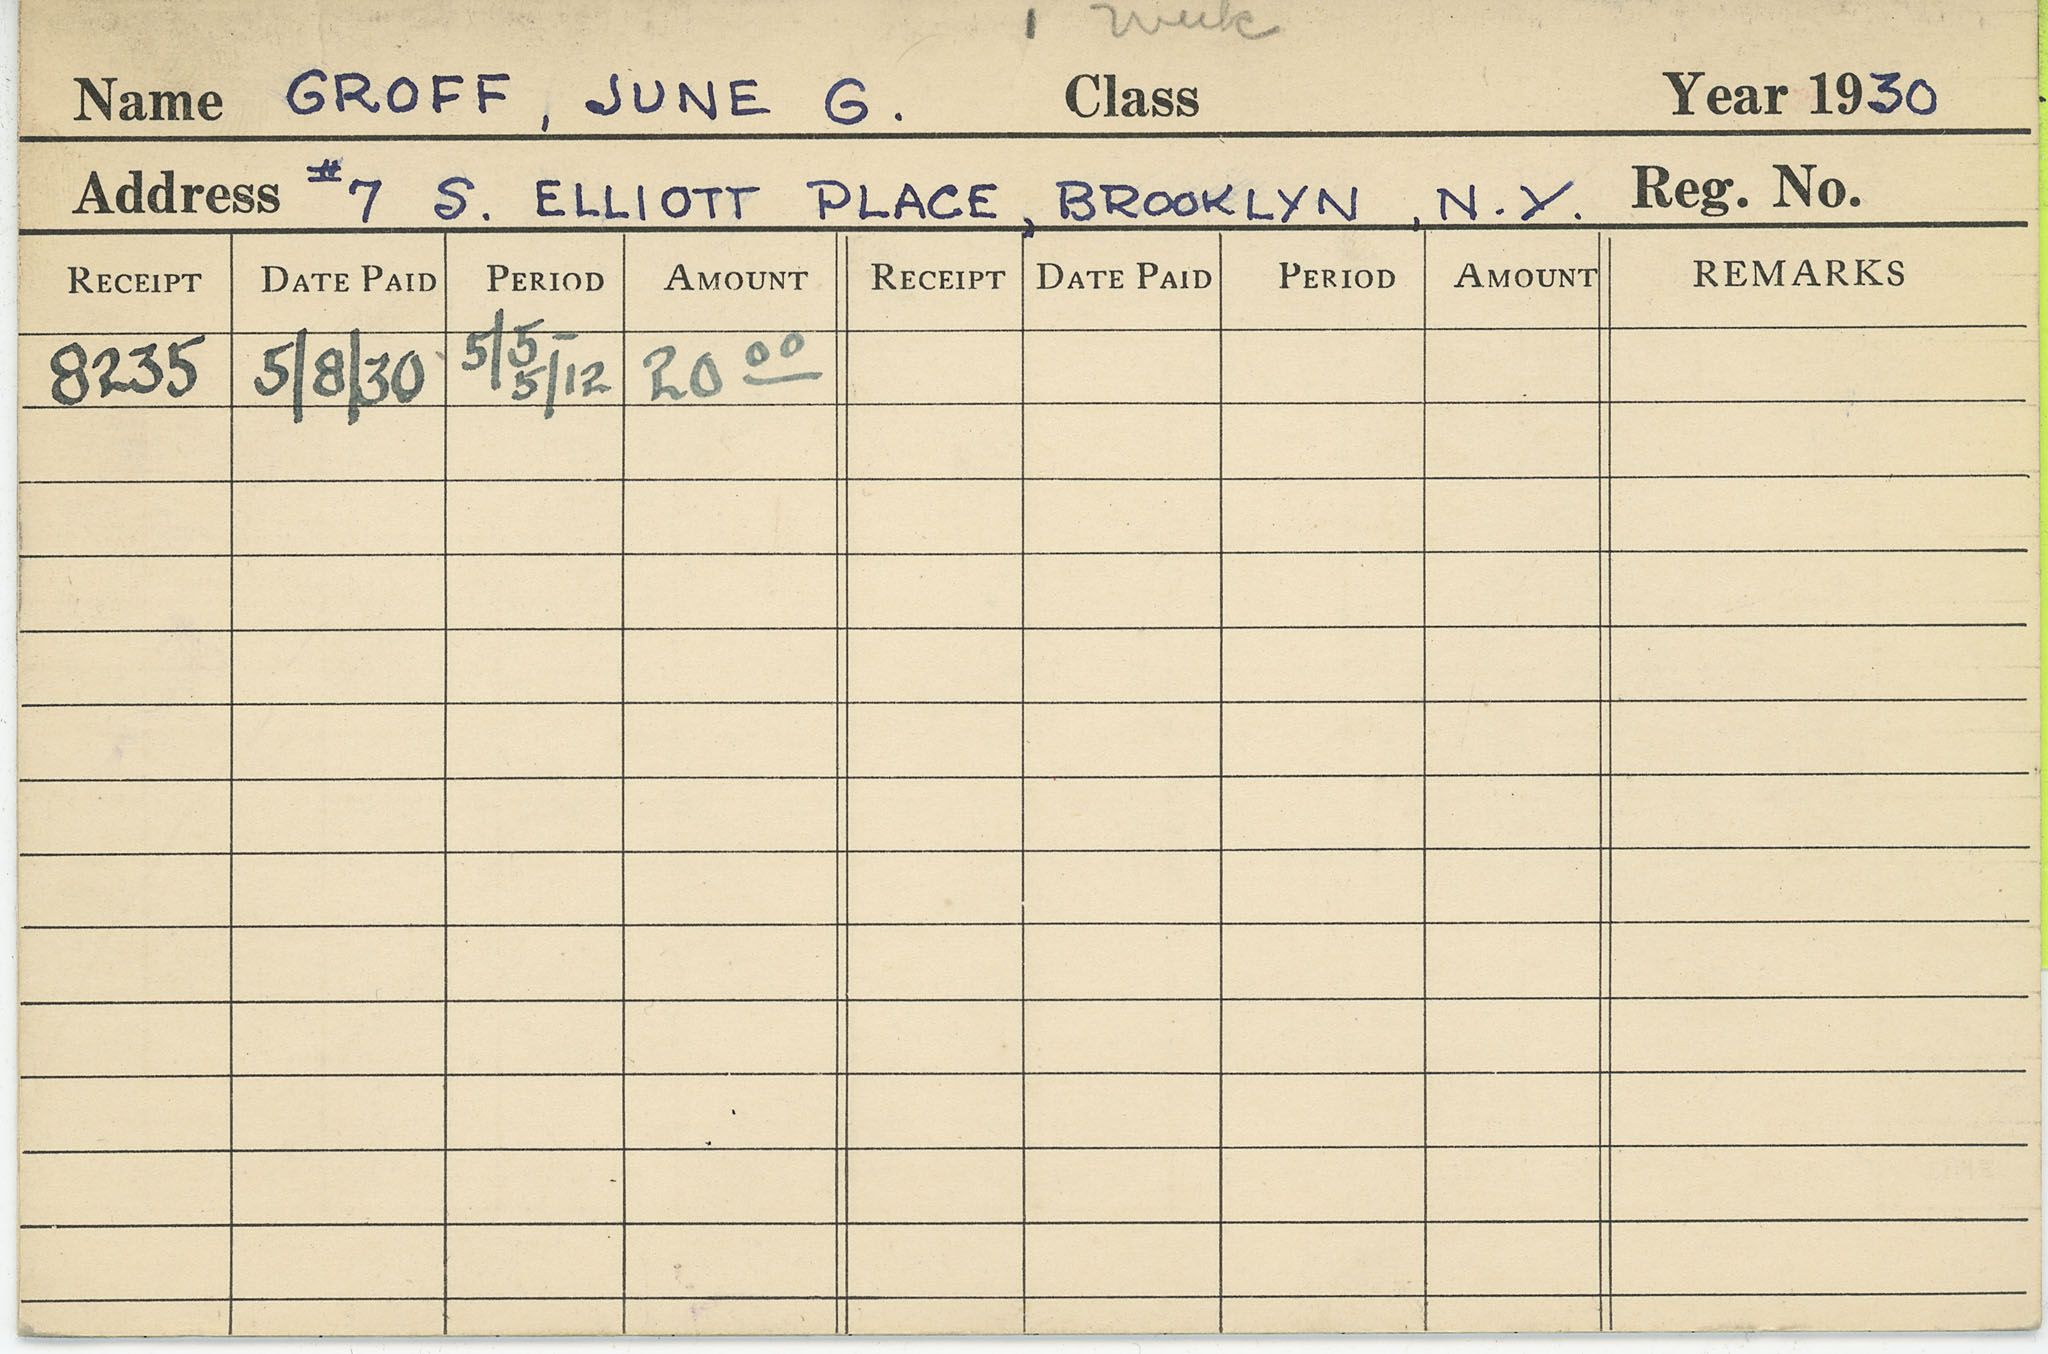 1 week
Name GROFF, JUNE G. Class Year 1930
Address #7 S. ELLIOTT PLACE, BROOKLYN, N.Y. Reg. No.
RECEIPT DATE PAID PERIOD AMOUNT RECEIPT DATE PAID PERIOD AMOUNT REMARKS
8235 5/8/30 5/5- 5/12 20 00